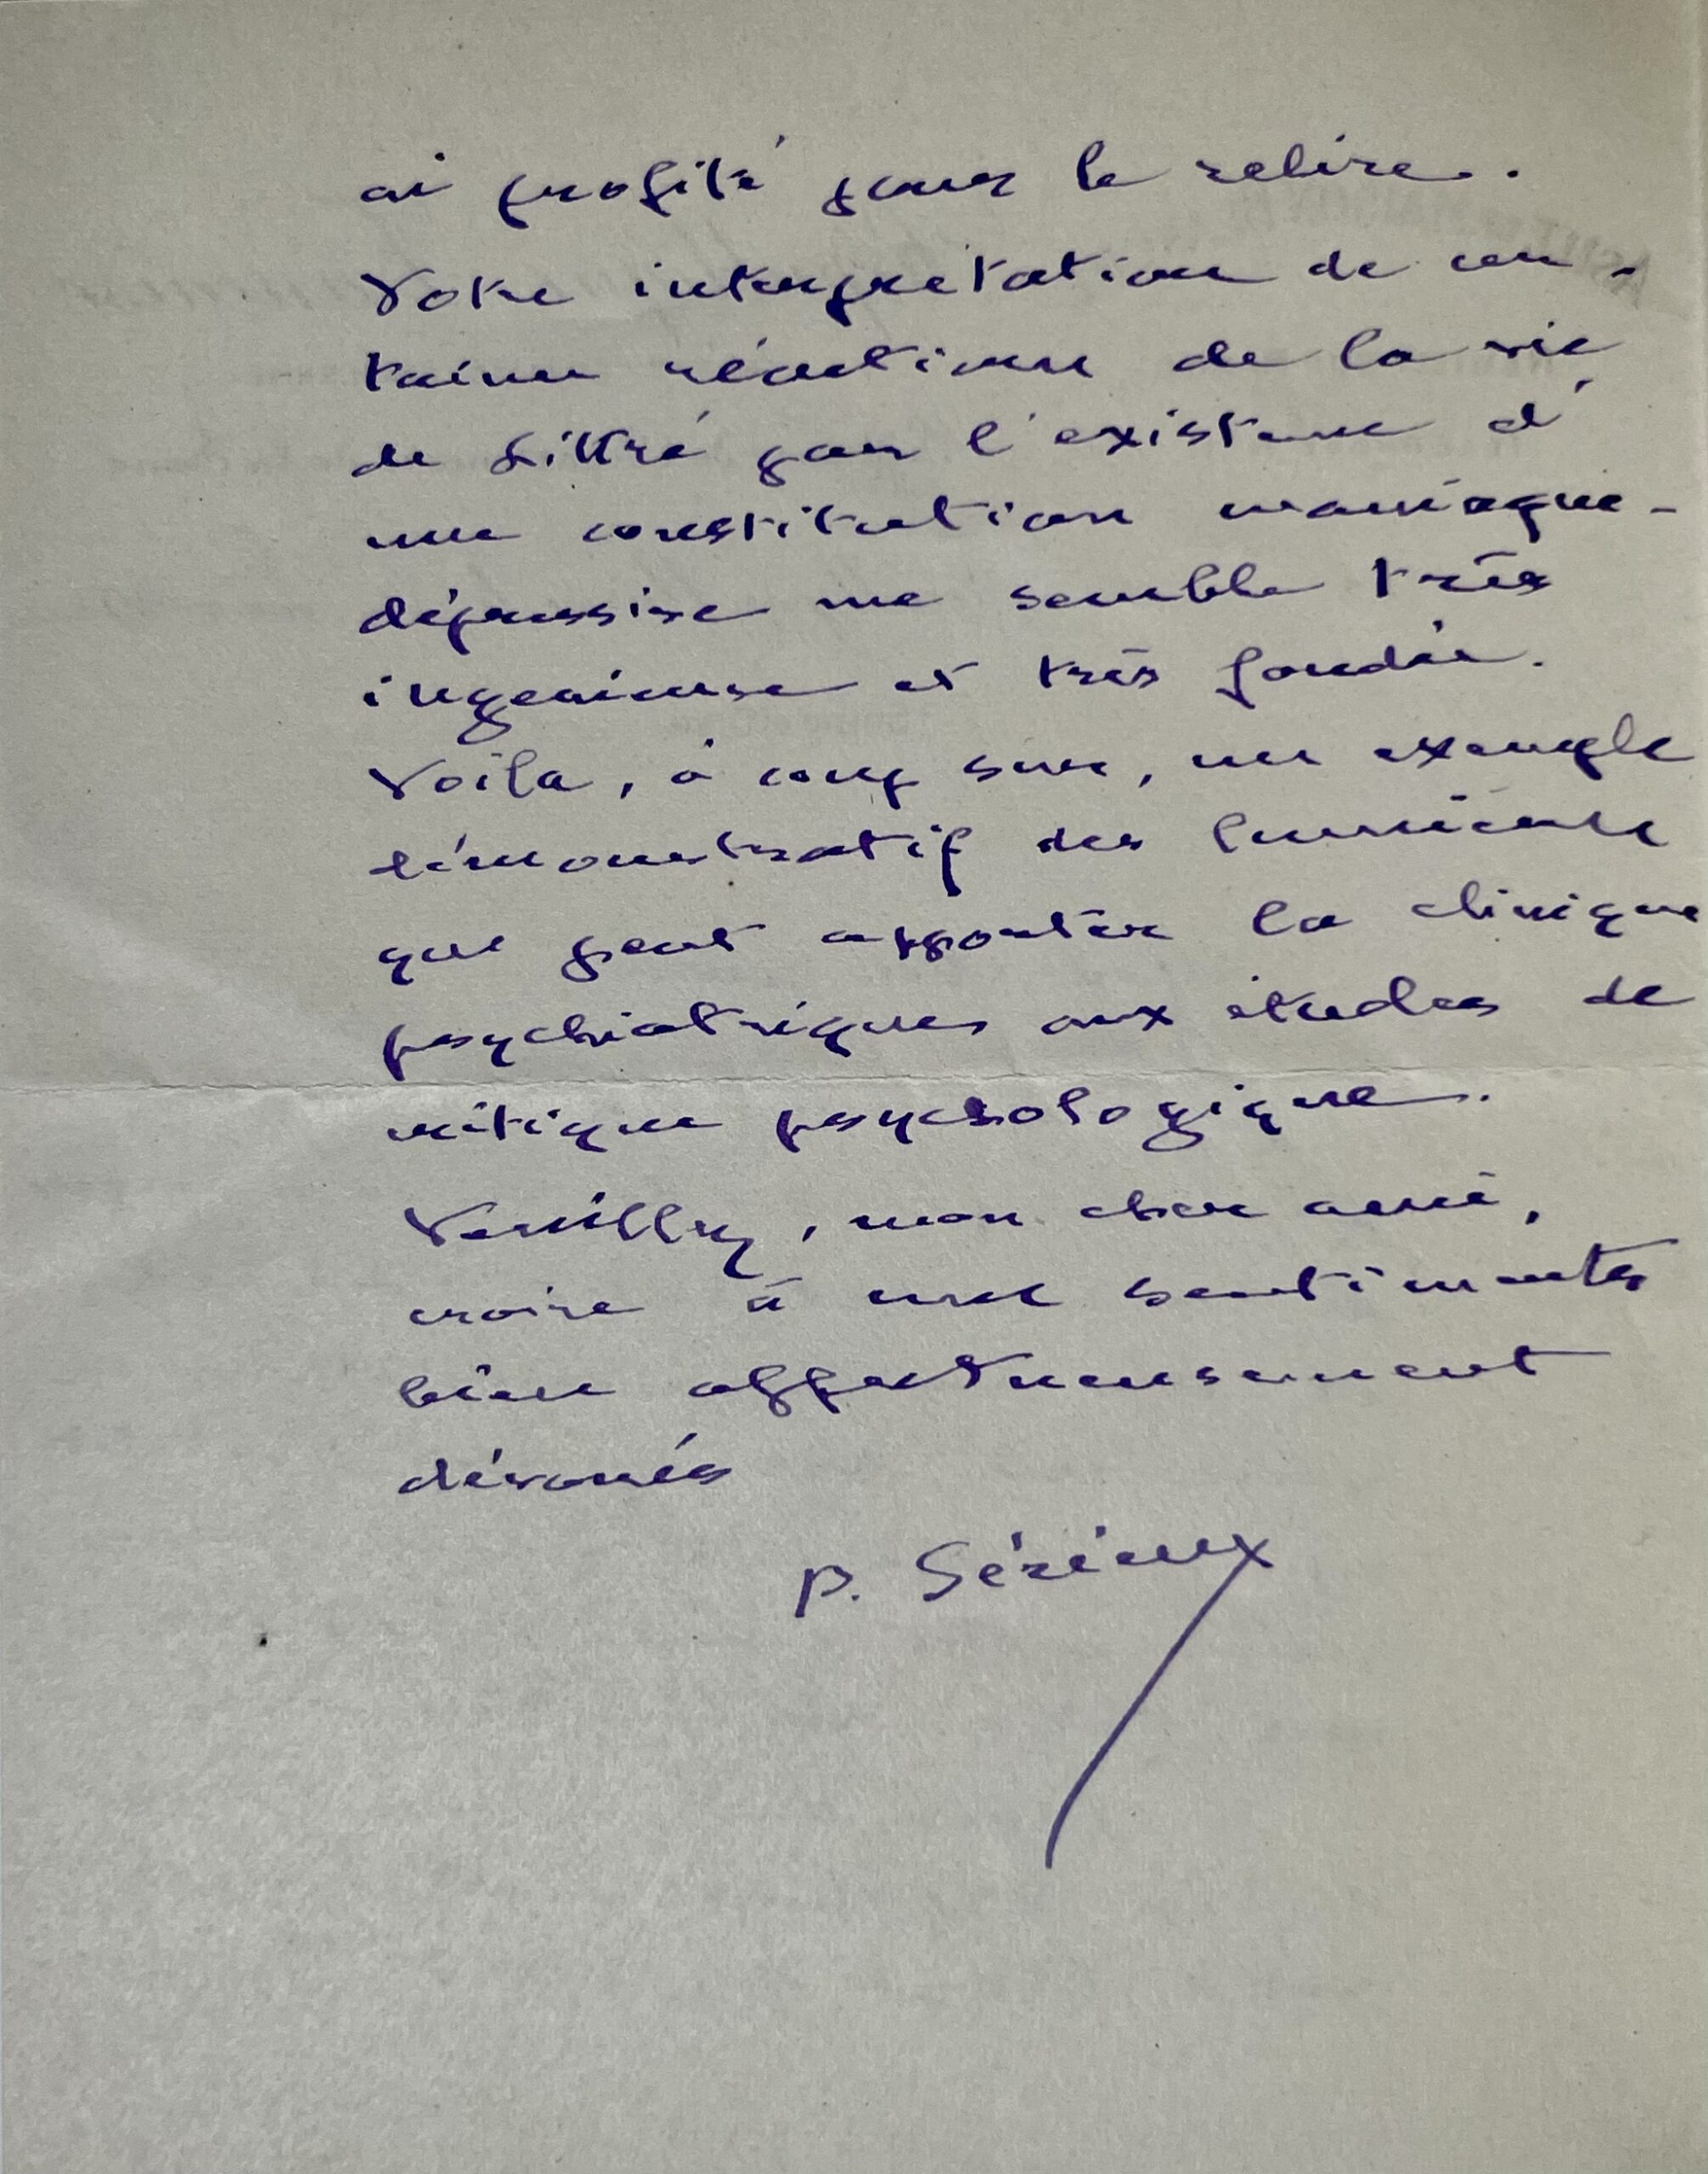 ai profité pour le relire.
Votre interprétation de cer-
taines réactions de la vie
de Littré par l'existence d'
une constitution maniaque-
dépressive me semble très
ingenieuse et très fondée.
Voila, à coup sur, un exemple
démonstratif des lumières
que peut apporter la clinique
psychiatriques aux études de
critique psychologique.
Veuillez, mon cher ami,
croire à mes sentiments
bien affectueusement
dévoués
P. Sérieux